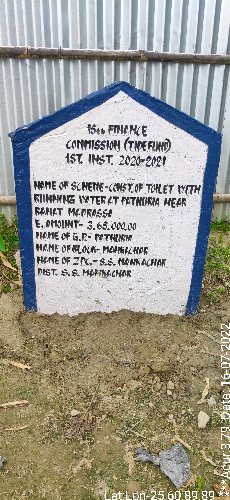 15th FINANCE
COMMISSION (TIDEFUND)
1ST. INST. 2020-2021
NAME OF SCHEME-CONST. OF TOILET WITH
RUNNING WATER AT PATHURIA NEAR
RAHAT MADRASSA
E. AMOUNT- 3,65,000.00
NAME OF G.P.- PATHURIA
NAME OF BLOCK- MANKACHAR
NAME OF ZPC.- S.S. MANKACHAR
DIST. S.S. MANKACHAR
Date- 16-07-2022
Lat Lon-25.60 89.89